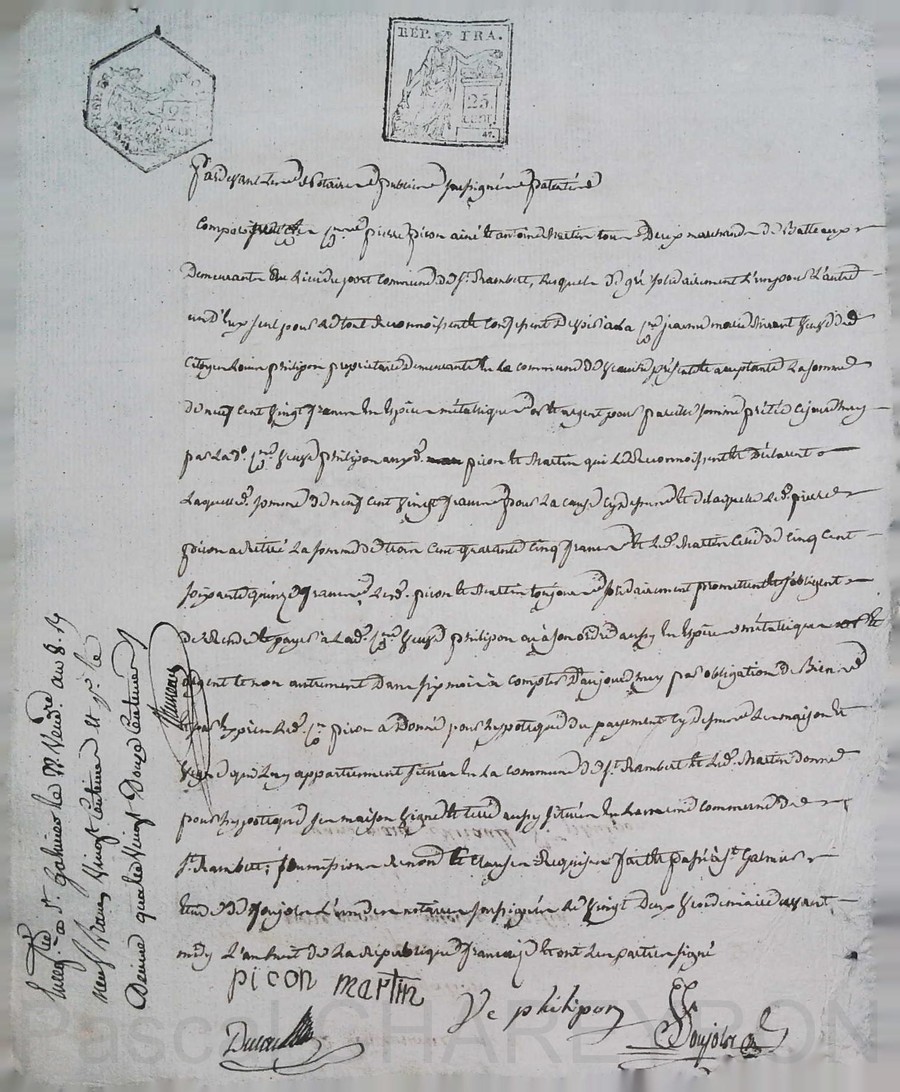 REP. FRA.
25
CENT.
25
Pardevant les Notaires publics soussignés patentés
pierre picon ainé et antoine Martin tous Deux marchands de Batteaux
Demeurants au lieu du port commune de St. Rambert, lesquels de gré solidairement l'un pour l'autre
un d'eux seul pour le tout reconnoissent et confessent Devoir a la jeanne marie vivant veuve de
Citoyen Louis philipon propriétaire Demeurante en la commune de présente et acceptante La somme
de neuf cent vingt francs en espèces métalliques or et argent pour pareille somme prêtée cejourd'huy
par lad. veuve philipon auxd. picon et Martin qui le reconnoissent et Déclarent
Laquelle somme de neuf cent vingt francs pour la cause cy dessus et de laquelle led. pierre
picon a retiré La somme de trois cent quarante cinq francs et led. Martin celle de cinq cent
soixante quinze francs Lesd. picon et Martin toujours solidairement promettent et s'obligent
de rendre et payer a lad. veuve philipon ou à son ordre aussy en espèces métalliques or et
argent et non autrement Dans six mois à compter D'aujourd'huy par obligation de Biens
led. picon a Donné pour hypotèque du payement cy dessus les maison et
vigne qui luy appartiennent situés en la commune de St. Rambert et led. Martin donne
pour hypotèque ses maison vigne et terre aussy situés en la même commune de
St. Rambert; soumissions renonc. et clauses requises fait et passé à St. Galmier
étude de Poujolx l'un des notaires soussignés le vingt Deux vendemiaire avant
midy L'an huit de La république française et ont les parties signé
picon martin
Ve philipon
Enregistré à St. Galmier le Vendre. an 8. 
neuf francs vingt centimes